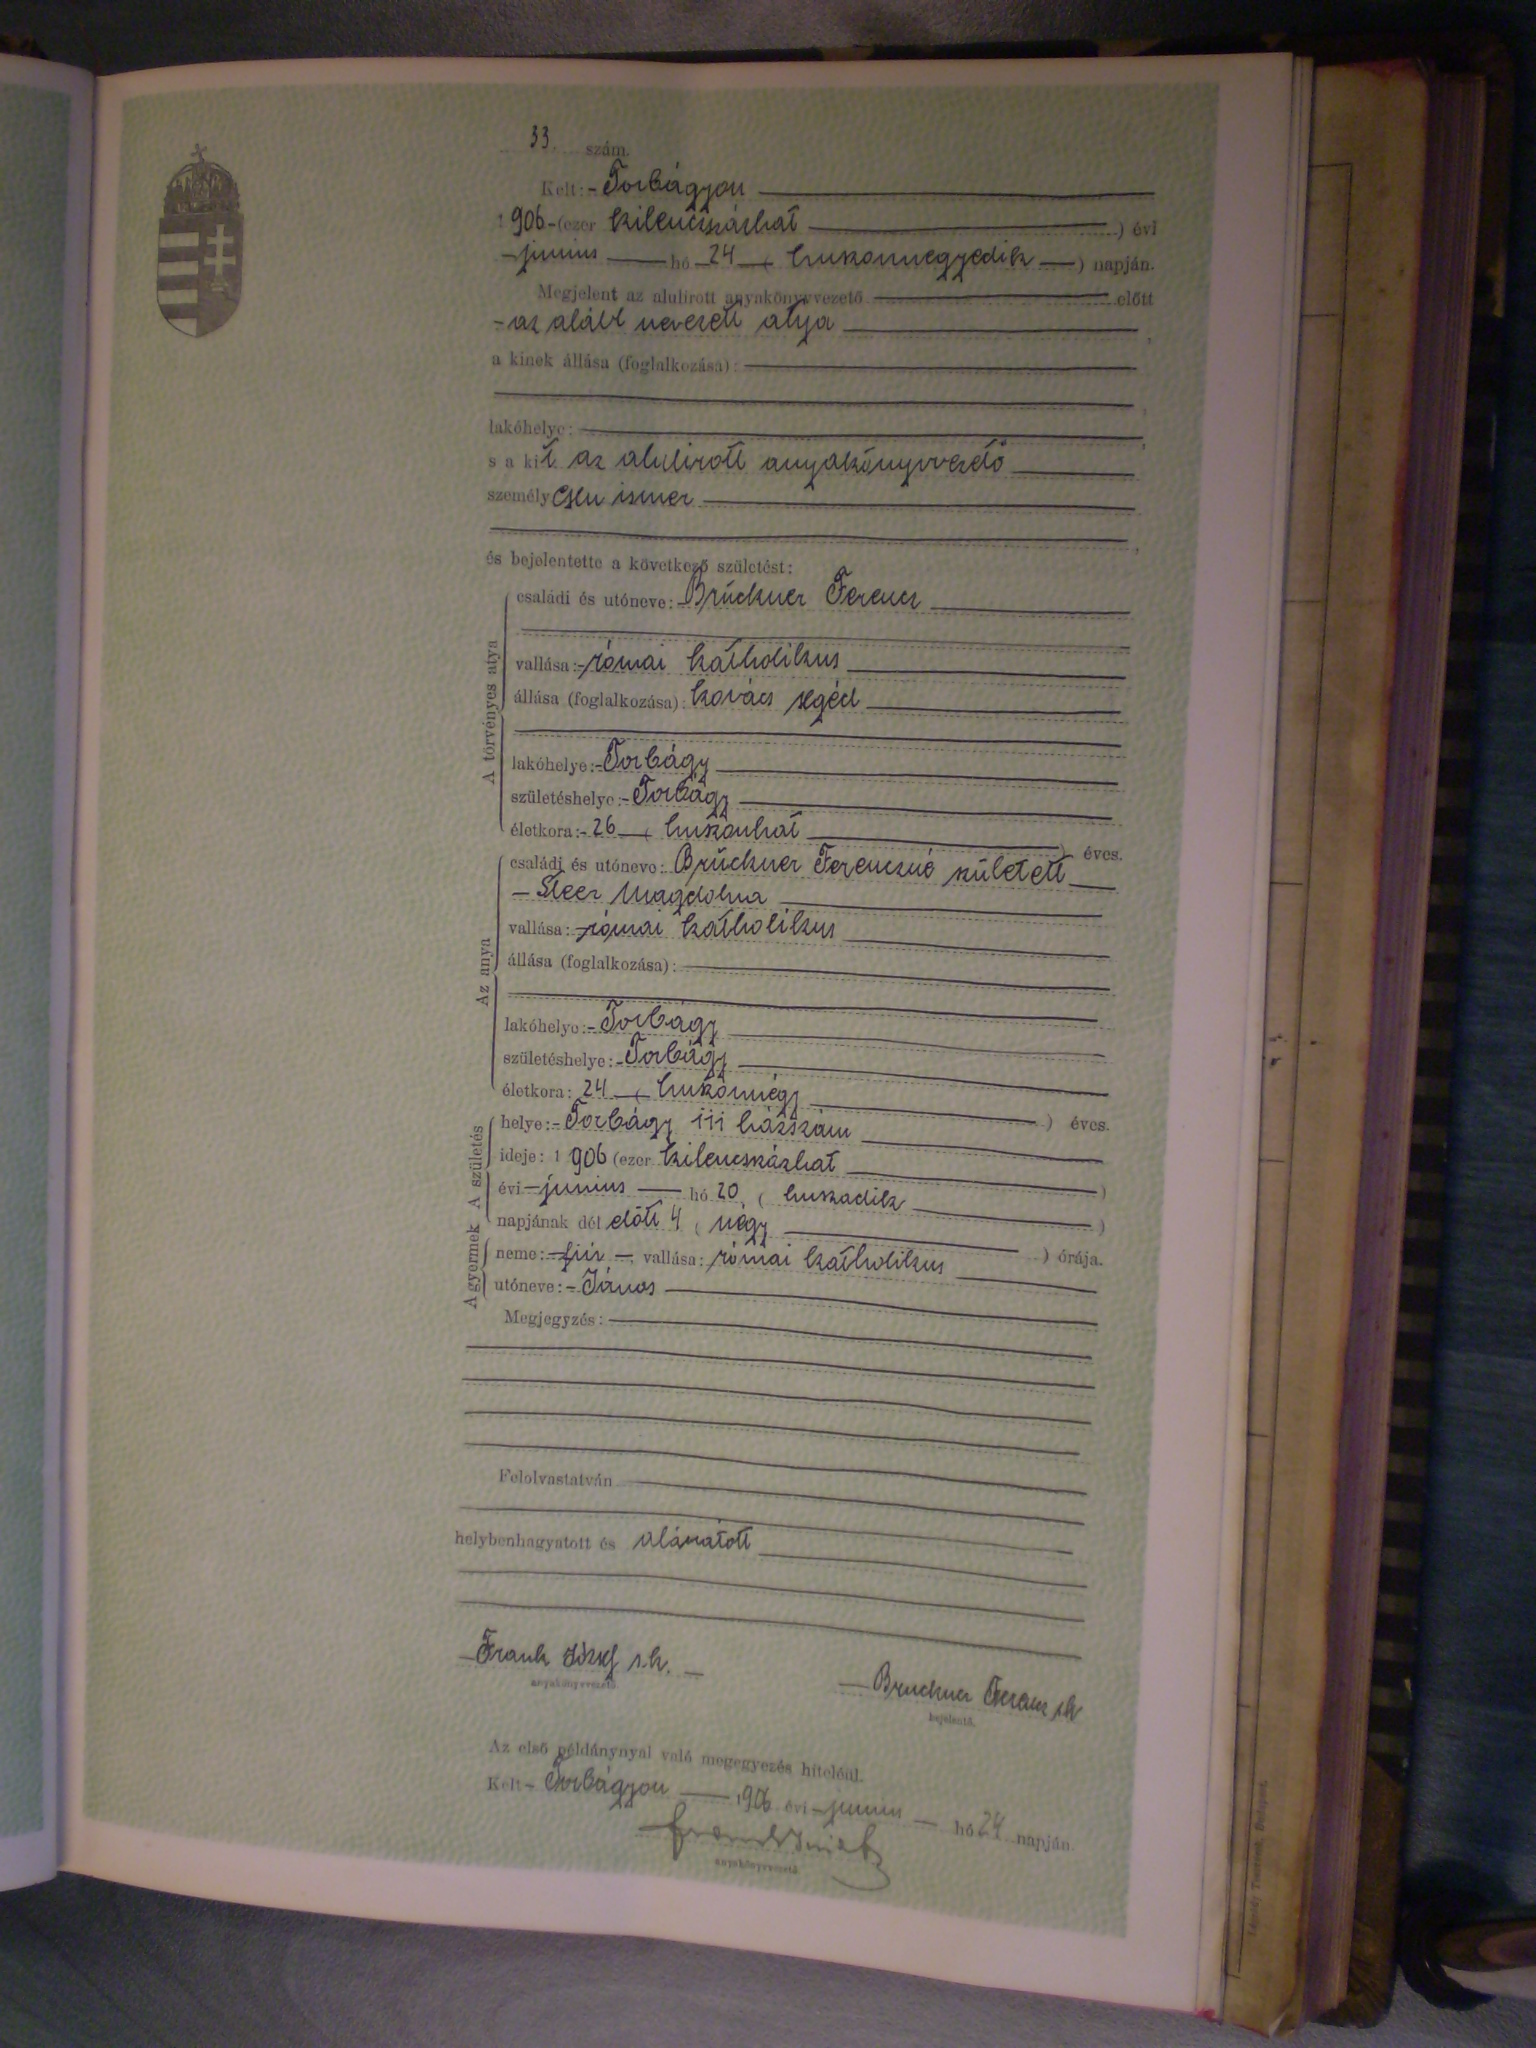 33. szám.
Kelt: - Torbágyon
1906 - (ezer kilenczszázhat) évi
- junius hó 24 ( huszonnegyedik ) napján.
Megjelent az alulirott anyakönyvvezető előtt
- az alább nevezett atyja,
a kinek állása (foglalkozása):
lakóhelye:
s a kit az alulirott anyakönyvvezető
személyesen ismer
és bejelentette a következő születést:
A törvényes atya
családi és utóneve: - Brückner Ferencz
vallása: - római katholikus
állása (foglalkozása): kovács segéd
lakóhelye: - Torbágy
születéshelye: - Torbágy
életkora: - 26 ( huszonhat ) éves.
Az anya
családi és utóneve: Brückner Ferenczné született
- Steer Magdolna
vallása: - római katholikus
állása (foglalkozása):
lakóhelye: - Torbágy
születéshelye: - Torbágy
életkora: 24 ( huszonnégy ) éves.
A születés
helye: - Torbágy 111 házszám
ideje: 1906 (ezer kilenczszázhat )
évi - junius hó 20. ( huszadik )
napjának dél előtt 4 ( négy ) órája.
A gyermek
neme: - fiú -, vallása: római katholikus
utóneve: - János
Megjegyzés:
Felolvastatván
helybenhagyatott és aláiratott
- Frank József s.k. -
anyakönyvvezető
- Bruckner Ferencz sk
bejelentő.
Az első példánynyal való megegyezés hiteléül.
Kelt - Torbágyon 1906 évi - junius - hó 24 napján
anyakönyvvezető